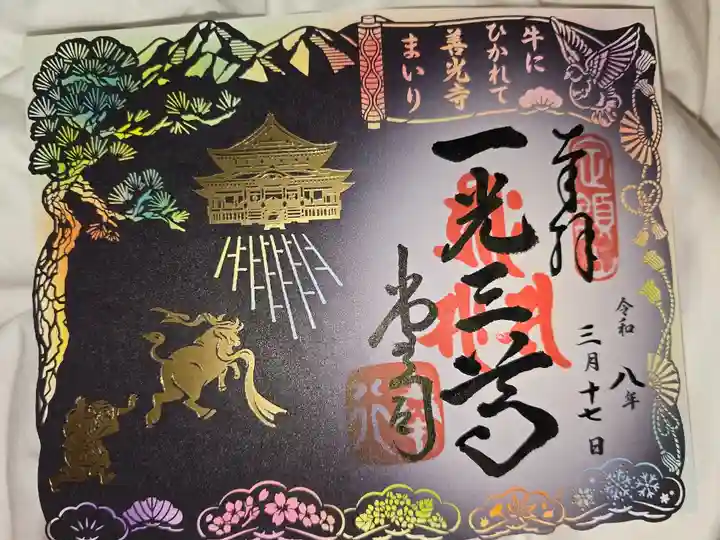 牛に
ひかれて
善光寺
まいり
奉拝
一光三尊
令和 八年
三月十七日